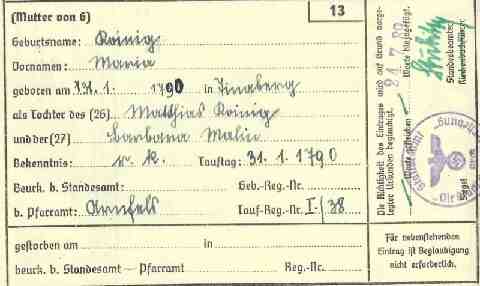 (Mutter von 6)
13
Geburtsname: Krinig
Vornamen: Maria
geboren am 31.1. 1790 in Tinaberg
als Tochter des (26) Matthias Krinig
und der (27) Barbara Malin
Bekenntnis: r. k. Tauftag: 31.1.1790
Beurk. b. Standesamt: Geb.-Reg.-Nr.
b. Pfarramt: Arnfels Tauf-Reg.Nr. I-/38
gestorben am in
beurk. b. Standesamt – Pfarramt Reg.-Nr.
Die Richtigkeit des Eintrages wird auf Grund vorge-
legter Urkunden beglaubigt.
Worte gestrichen
Worte hinzugefügt.
Standesbeamter
Kirchenbuchführer:
Siegel
Für nebenstehenden
Eintrag ist Beglaubigung
nicht erforderlich.